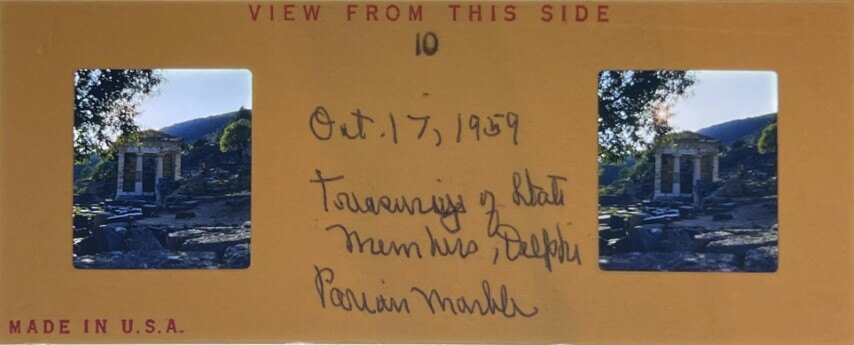 VIEW FROM THIS SIDE
10
Oct. 17, 1959
Treasuries of State
Members, Delphi
Parian Marble
MADE IN U.S.A.